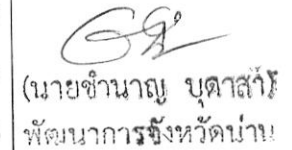 (นายชำนาญ บุดาสาร์)
พัฒนาการจังหวัดน่าน